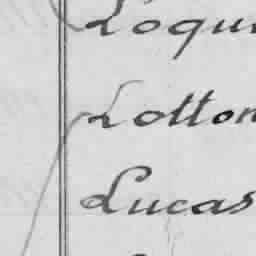 Loqu
Lotton
Lucas